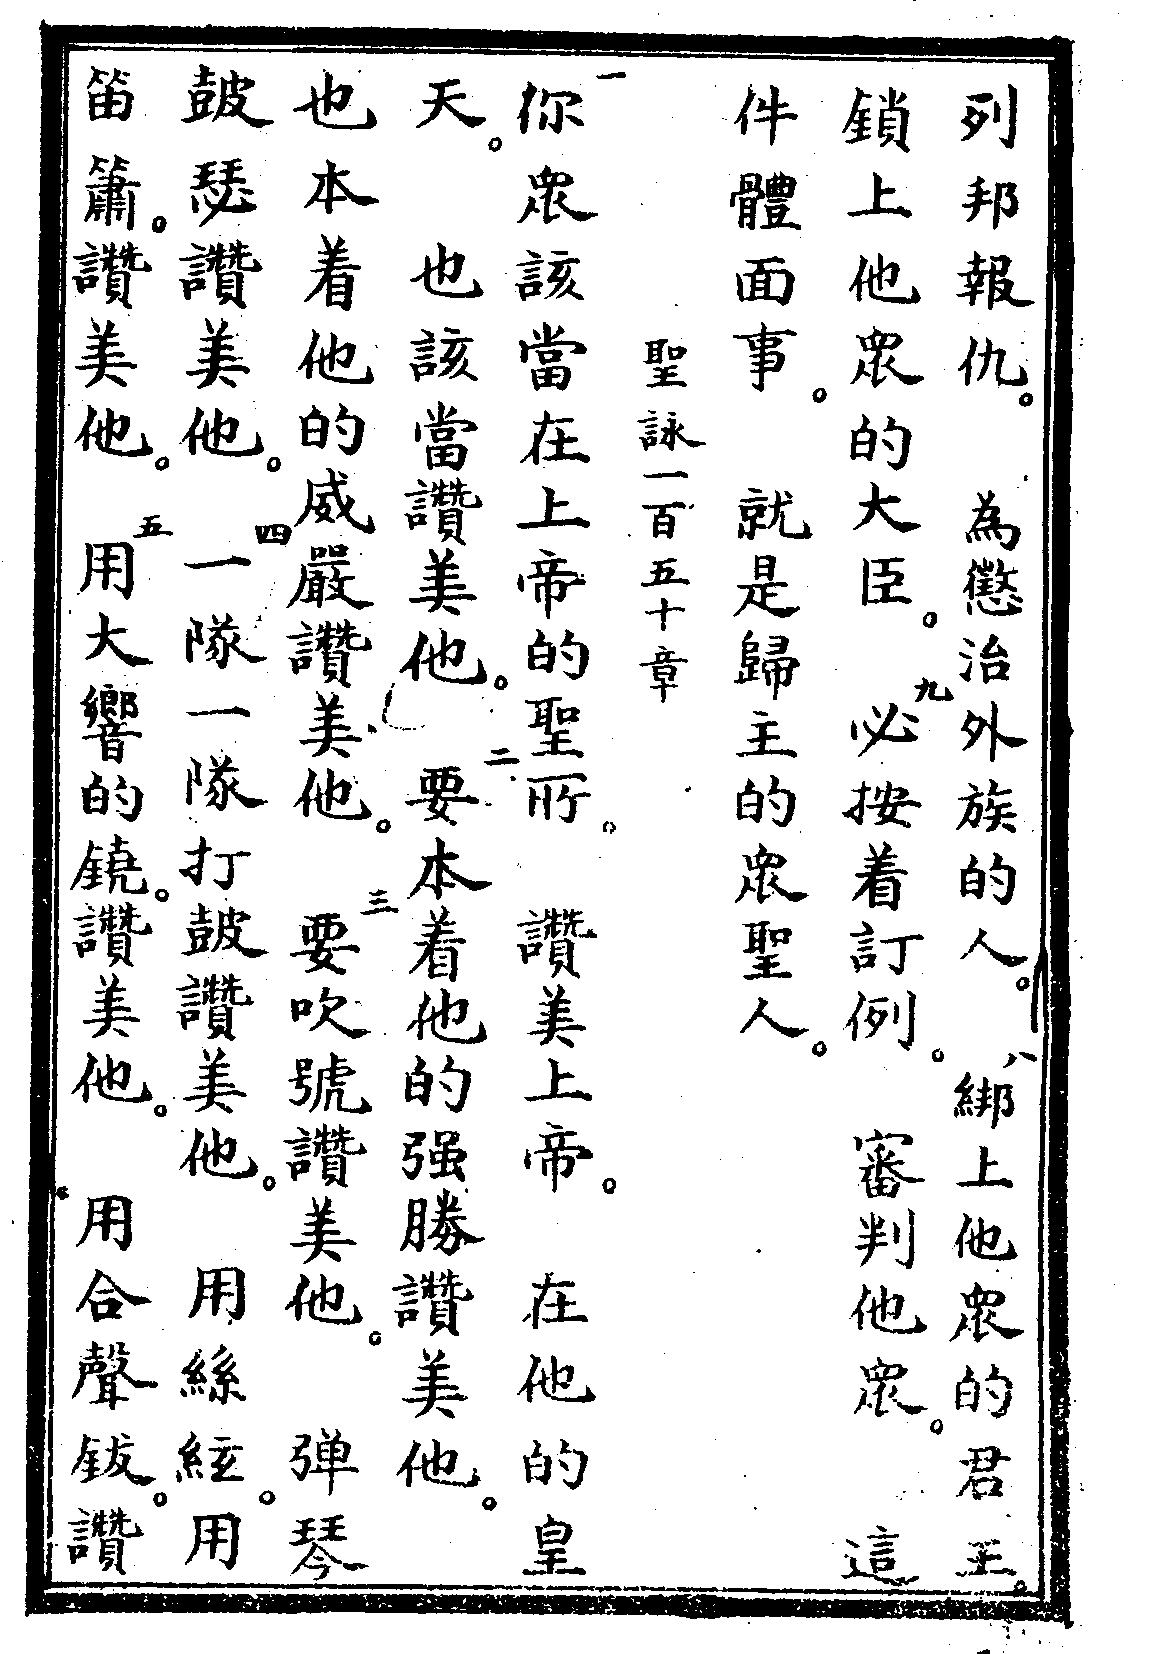 列邦報仇。為懲治外族的人。八綁上他眾的君王。
鎖上他眾的大臣。九必按着訂例。審判他眾。這
件體面事。就是歸主的眾聖人。
聖詠一百五十章
一你眾該當在上帝的聖所。讚美上帝。在他的皇
天。也該當讚美他。二要本着他的强勝讚美他。
也本着他的威嚴讚美他。三要吹號讚美他。弹琴
鼓瑟讚美他。四一隊一隊打鼓讚美他。用絲絃。用
笛簫。讚美他。五用大響的鐃。讚美他。用合聲鈸。讚